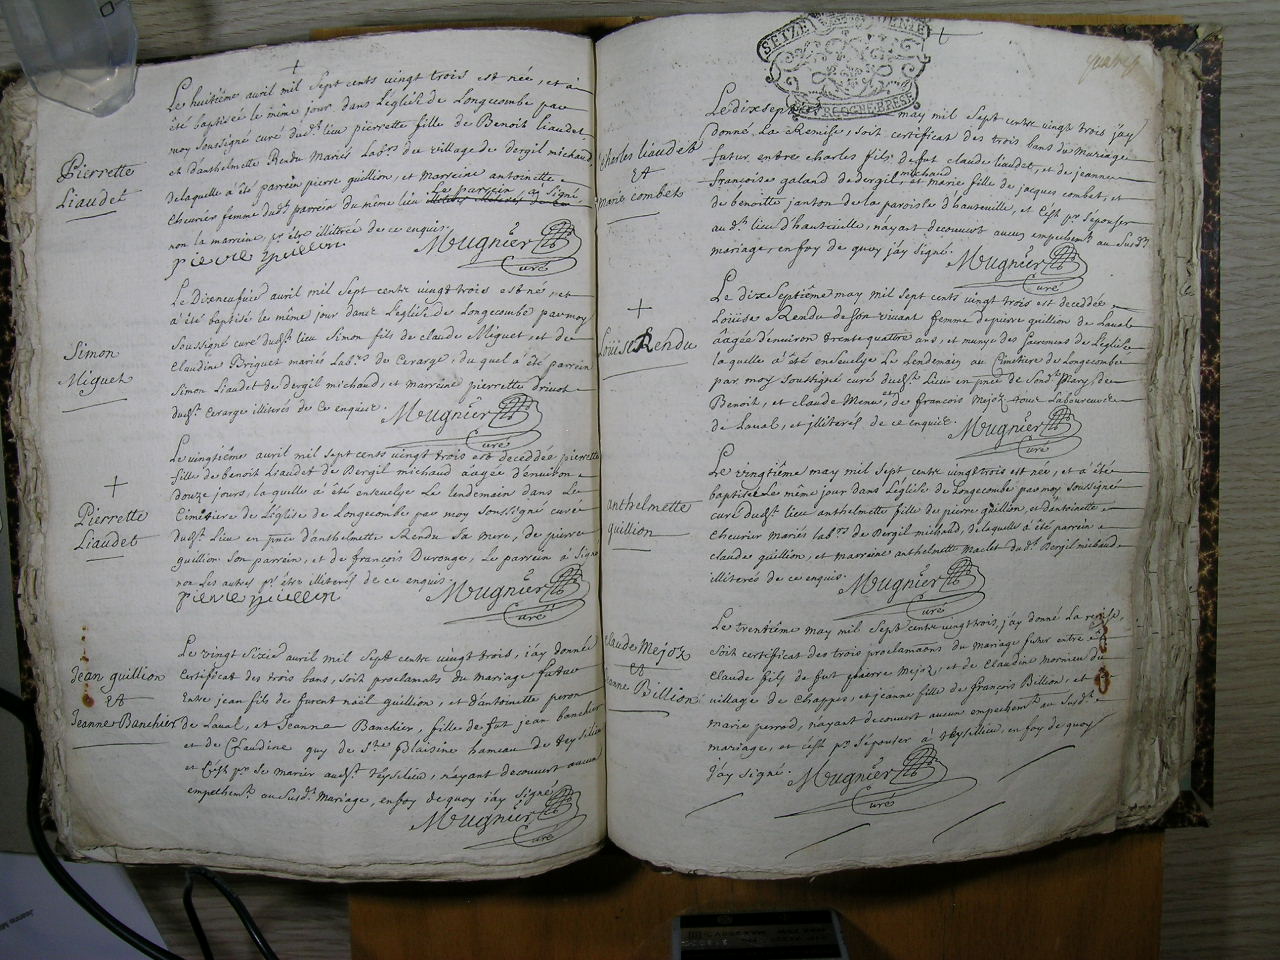 Pierrette
Liaudet
Le huitiême avril mil Sept cents vingt trois est née, et à
été baptisée le même jour dans L'église de Longecombe par
moy Soussigné curé dud.t lieu pierrette fille de Benoit Liaudet
et d'anthelmette Rendu Mariés Lab.rs du village de dergil michaud,
delaquelle a été parrein pierre guillion, et Marreine antoinette
Chevrier femme dud.t parrein du même lieu Le parrein à Signé,
non la marreine, p.r être illitérée de ce enquis.
pierre guillion Mugnier
Curé
Simon
Miguet
Le Dixneufuiê avril mil Sept cents vingt trois est né, et
à été baptisé le même jour dans L'église de Longecombe par moy
Soussigné curé dud.t lieu Simon fils de claude Miguet, et de
Claudine Briguet mariés Lab.rs de Cerarge, du quel a été parrein
Simon Liaudet de dergil michaud, et marreine pierrette drivot
dud.t Cerarge illiterés de Ce enquis. Mugnier
Curé
Pierrette
Liaudet
Le vingtiême avril mil Sept cents vingt trois est deceddée pierrette
fille de benoit Liaudet de Dergil michaud aagée d'environ
douze jours, la quelle a été ensevelye Le lendemain dans Le
Cimetiere de L'église de Longecombe par moy Soussigné curé
dud.t Lieu en pñce d'anthelmette Rendu Sa mere, de pierre
guillion Son parrein, et de François Durouge, Le parrein à Signé
non Les autres p.r être illiterés de ce enquis Mugnier
pierre guillion
Curé
Jean guillion
Et
Jeanne Banchier
Le vingt Sixiê avril mil Sept cents vingt trois, j'ay donné
Certificat des trois bans, Soit proclamats du mariage futur
Entre jean fils de furent noël guillion, et d'antoinette peron
de Laval, et Jeanne Banchier, fille de fut jean banchier
et de Claudine guy de S.te Blaisine hameau de
et C'ést p.r Se marier aud.t n'ayant decouvert aucun
empechem.t au Susd.t Mariage, en foy de quoy j'ay Signé
Mugnier
Curé
Charles Liaudet
Et
Marie combet
Le dix Sept may mil Sept cents vingt trois j'ay
donné La Remise, Soit certificat des trois bans du Mariage
futur entre charles fils de fut claude Liaudet, et de jeanne
françoise galand de dergil michaud, et marie fille de jacques combet, et
de benoitte janton de la paroisse d'hauteville, et C'ést p.r S'épouser
au d.t lieu d'hauteville, n'ayant decouvert aucun empechem.t au Susd.t
mariage, en foy de quoy j'ay Signé. Mugnier
Curé
Loüise Rendu
Le dix Septiême may mil Sept cents vingt trois est deceddée
Loüise Rendu de Son vivant femme de pierre guillion de Laval
aagée d'environ trente quattre ans, et munye des Sacremens de L'église
laquelle a été ensevelye Le Lendemain au Cimetiere de Longecombe
par moy Soussigné curé dud.t Lieu en pñce de Sond.t Mary, de
Benoit, et claude Menu, et de françois Mejoz tous Laboureurs
de Laval, et jlliterés de ce enquis. Mugnier
Curé
anthelmette
guillion
Le vingtiême may mil Sept cents vingt trois est née, et à été
baptisée Le même jour dans L'église de Longecombe par moy Soussigné
curé dud.t lieu anthelmette fille de pierre guillion, et d'antoinette
Chevrier mariés lab.rs de Dergil michaud, de laquelle à été parrein
claude guillion, et marraine anthelmette Maclet dud.t Dergil michaud
illiterés de ce enquis. Mugnier
Curé
Claude Mejoz
Et
Jeanne Billion
Le trentiême may mil Sept cents vingt trois, j'ay donné La remise,
Soit certificat des trois proclamaõns du mariage futur entre
Claude fils de fut pierre Mejoz, et de Claudine Mornieu du
village de Chappes, et jeanne fille de françois Billion, et
marie perrod, n'ayant decouvert aucun empechem.t au Susd.t
mariage, et c'ést p.r S'épouser à , en foy de quoy
J'ay Signé. Mugnier
Curé